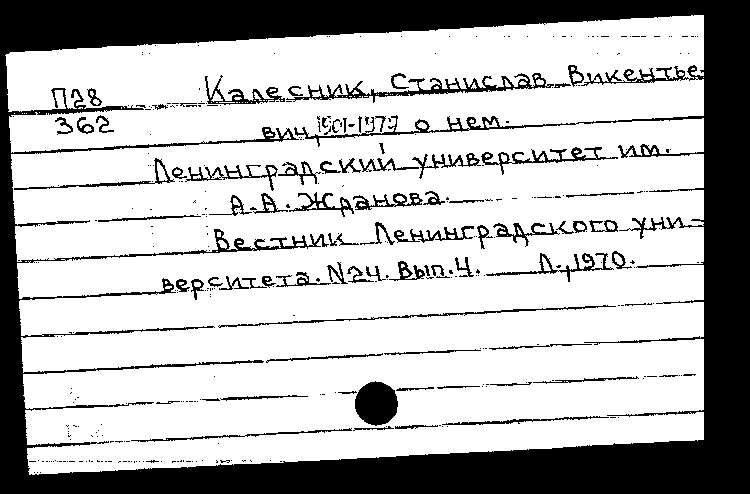 П28 Калесник, Станислав Викентье-
362 вич, 1901-1977 о нем.
Ленинградский университет им.
А.А. Жданова.
Вестник Ленинградского уни-
верситета. N24. Вып.4. Л., 1970.